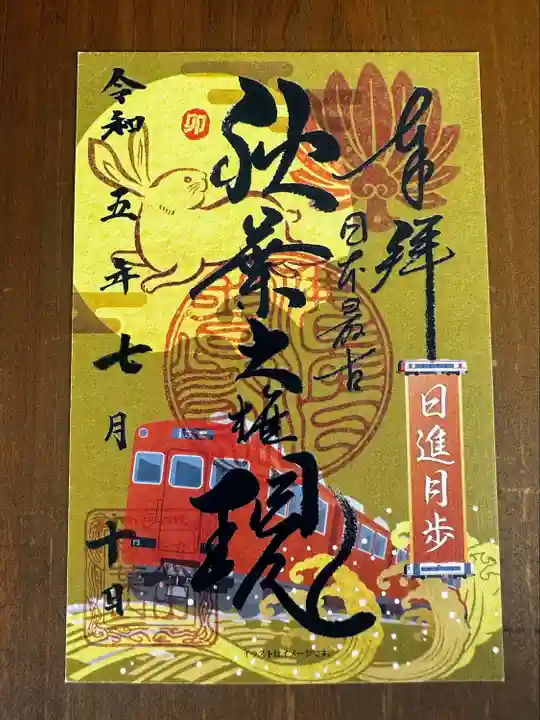 奉拝
日進月歩
日本最古
秋葉大権現
卯
令和五年七月十日
イラストはイメージです。